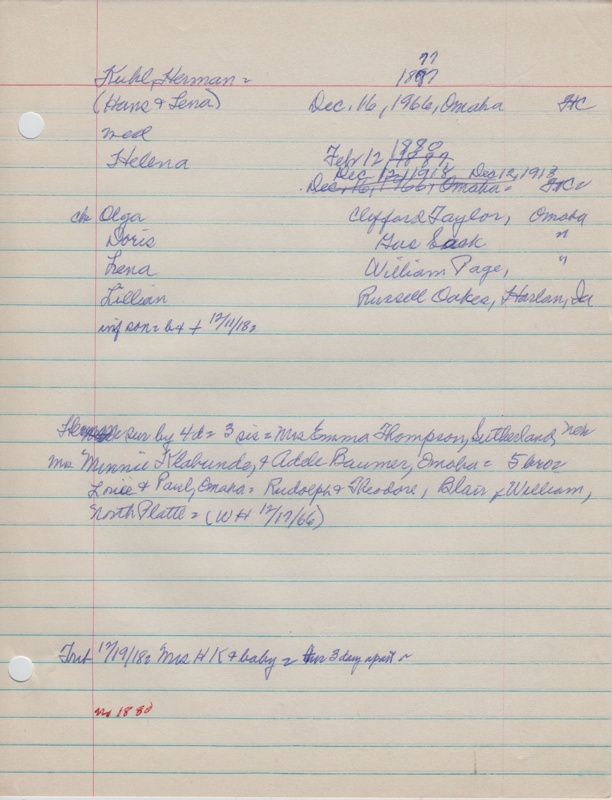 77
1897
Kuhl, Herman =
(Hans & Lena) Dec. 16, 1966, Omaha FHC
med
1880
Helena Feb 12 1882
Dec 12, 1918 Dec 12, 1918
Dec, 16, 1966, Omaha =
ch Olga Clifford Taylor, Omaha
Doris Gus Sask "
Lena William Page, "
Lillian Russell Oakes, Harlan, Ia
inf son = b4 + 12/11/18 =
Herman sur by 4d = 3 sis = Mrs Emma Thompson, Sutherland, neb
Mrs Minnie Klabunde, & Adde Baumer, Omaha = 5 bro =
Louie & Paul, Omaha = Rudolph & Theodore, Blair & William,
North Platte = (WH 12/17/66)
12/19/18 = Mrs H K & baby = fur 3 day apart ~
no 1880